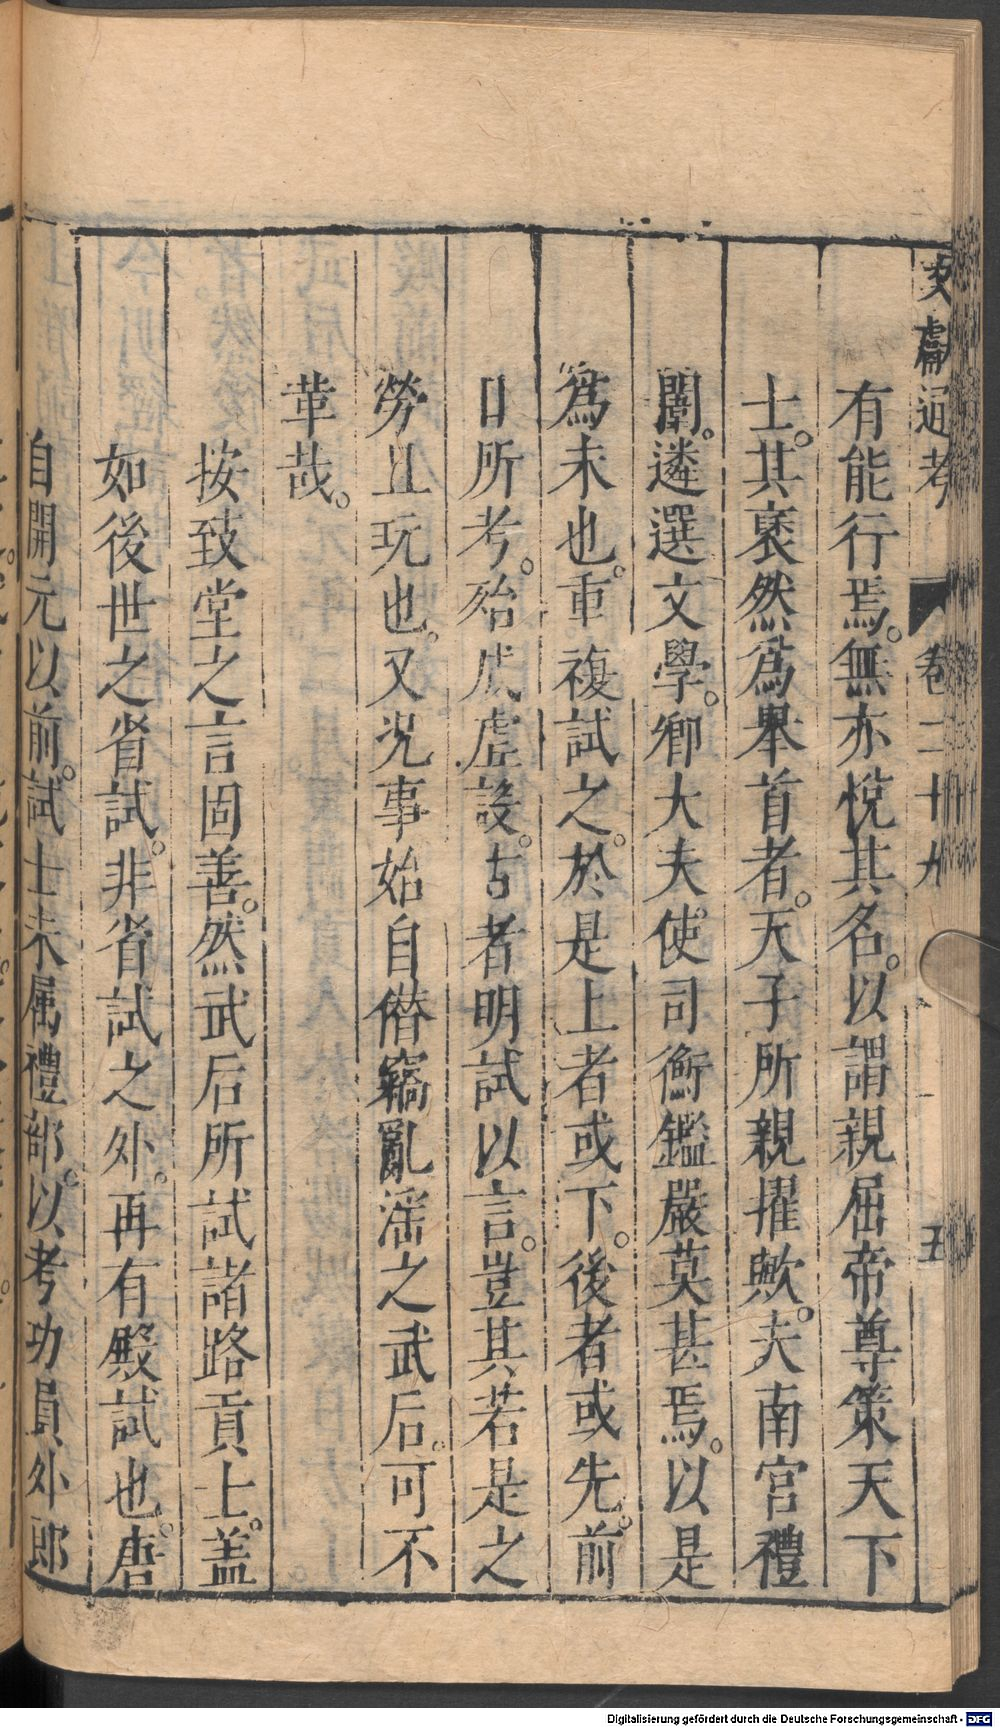 文獻通考 卷二十九 五
有能行焉。無亦悅其名。以謂親屈帝尊策天下
士。其褎然爲舉首者。天子所親擢歟。夫南宮禮
闈。遴選文學。卿大夫使司衡鑑嚴莫甚焉。以是
爲未也。重複試之。於是上者或下。後者或先。前
日所考。殆成虛設。古者明試以言。豈其若是之
勞且玩也。又況事始自僭竊亂淫之武后。可不
革哉。
按致堂之言固善。然武后所試諸路貢士。蓋
如後世之省試。非省試之外。再有殿試也。唐
自開元以前。試士未属禮部。以考功員外郎
Digitalisierung gefördert durch die Deutsche Forschungsgemeinschaft - DFG